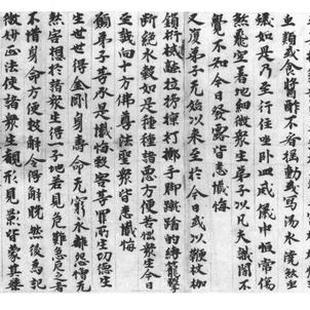 虫類或食將酢不看搖動或寫湯水澆煞虫
蟻如是乃至行住坐卧四威儀中恒常傷
煞飛空著地細微衆生弟子以凡夫識闇不
覺不知今日發露皆悉懺悔
又復弟子无始以來至於今日或以鞭杖枷
鎖桁械壓拉拷掠打擲手脚蹴踏的縛籠繫
斷絶水穀如是種種諸惡方便苦惱衆生今日
至誠向十方佛尊法聖衆皆悉懺悔
願弟子等承是懺悔煞害等罪所生功德生
生世世得金剛身壽命无窮永離怨憎无
煞害想於諸衆生得一子地若見危難急厄之者
不惜身命方便救解令得解脫然後爲說
微妙正法使諸衆生覩形見影皆蒙其樂